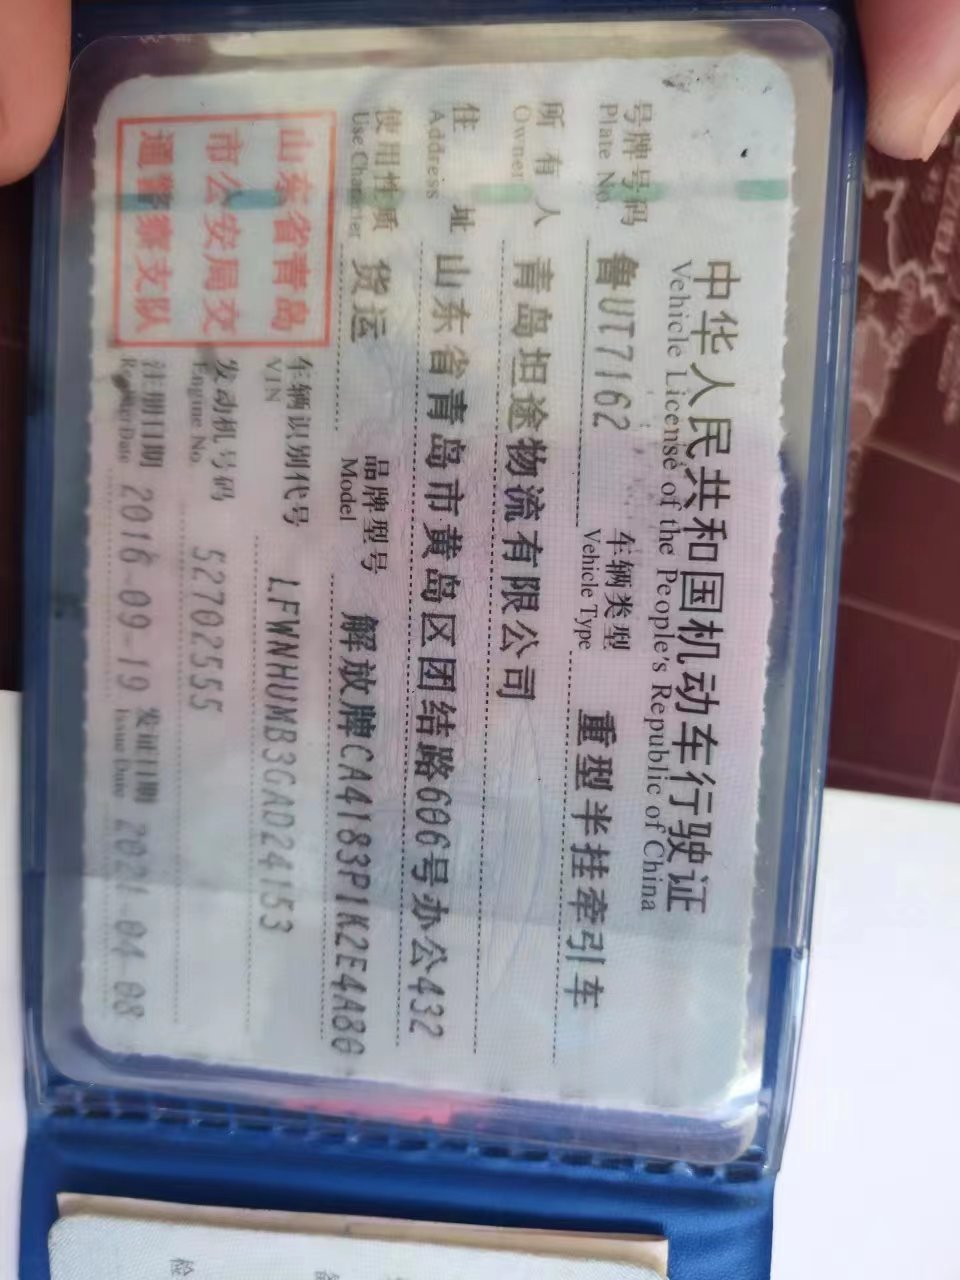 中华人民共和国机动车行驶证
Vehicle License of the People's Republic of China
号牌号码 鲁UT7162 车辆类型 重型半挂牵引车
Plate No. Vehicle Type
所有人 青岛坦途物流有限公司
Owner
住址 山东省青岛市黄岛区团结路606号办公432
Address
使用性质 货运 品牌型号 解放牌CA4183P1K2E4A80
Use Character Model
车辆识别代号 LFWNHUMB3GAD24153
VIN
发动机号码 52702555
Engine No.
注册日期 2016-09-19 发证日期 2021-04-08
Register Date Issue Date
山东省青岛
市公安局交
通警察支队
检